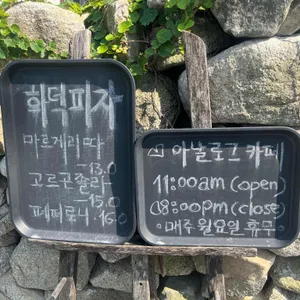 화덕피자
마르게리따
-13.0
고르곤졸라
-15.0
페퍼로니.16.0
아날로그 카페
11:00am (open)
18:00pm (close)
매주 월요일 휴무